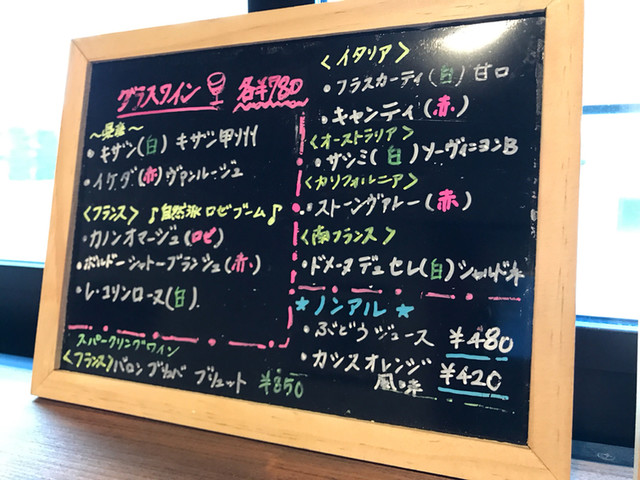 グラスワイン 各¥780
・キザン(白) キザン甲州
・イケダ(赤)ヴァンルージュ
<フランス> ♪自然派ロゼブーム♪
・カノンオマージュ(ロゼ)
・ボルドーシャトーブランジュ(赤)
・レ・コリンローヌ(白)
スパークリングワイン
<フランス>バロン ブリュット ¥850
<イタリア>
・フラスカーティ(白)甘口
・キャンティ(赤)
<オーストラリア>
・サシミ(白)ソーヴィニヨンB
<カリフォルニア>
・ストーンヴァレー(赤)
<南フランス>
・ドメーヌデュセレ(白)シャルドネ
★ノンアル★
・ぶどうジュース ¥480
・カシスオレンジ風味 ¥420